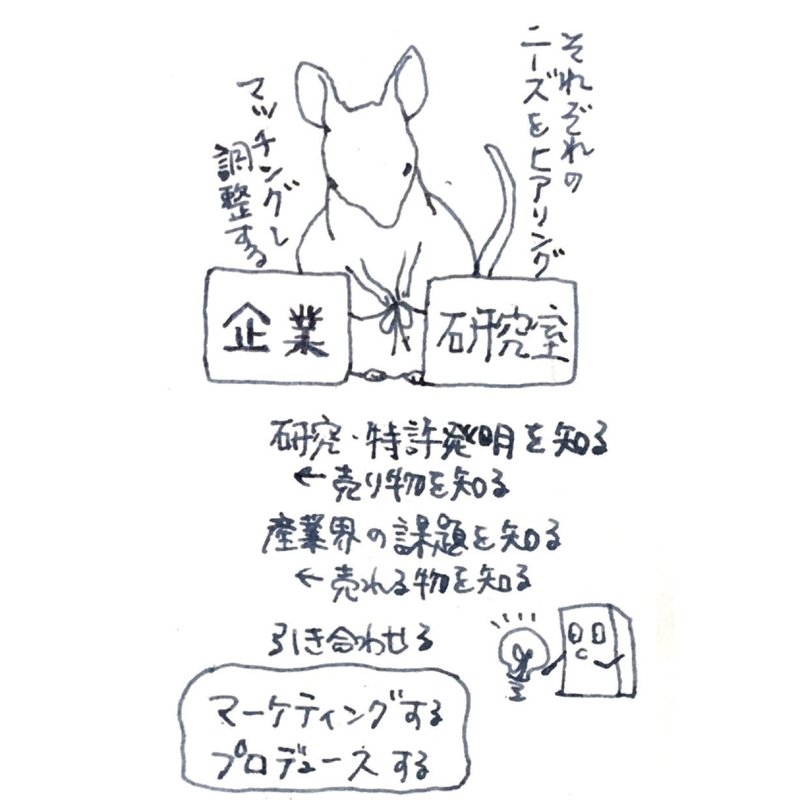 それぞれの
ニーズをヒアリング
マッチングし
調整する
企業
研究室
研究・特許発明を知る
←売り物を知る
産業界の課題を知る
←売れる物を知る
引き合わせる
マーケティングする
プロデュースする